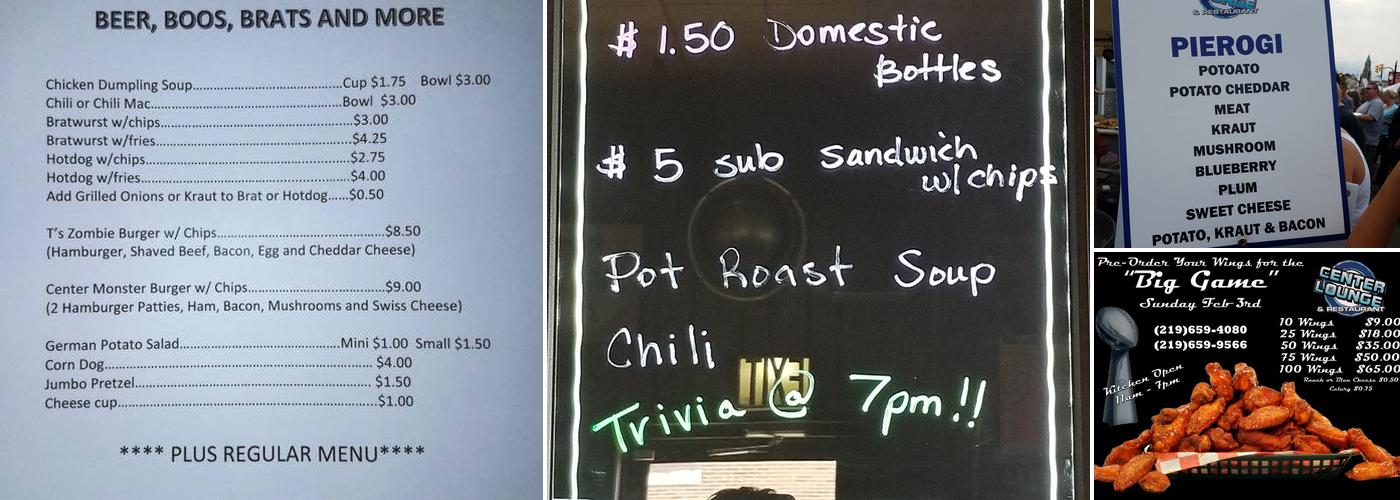 BEER, BOOS, BRATS AND MORE
Chicken Dumpling Soup..........Cup $1.75 Bowl $3.00
Chili or Chili Mac..........Bowl $3.00
Bratwurst w/chips..........$3.00
Bratwurst w/fries..........$4.25
Hotdog w/chips..........$2.75
Hotdog w/fries..........$4.00
Add Grilled Onions or Kraut to Brat or Hotdog......$0.50
T's Zombie Burger w/ Chips..........$8.50
(Hamburger, Shaved Beef, Bacon, Egg and Cheddar Cheese)
Center Monster Burger w/ Chips..........$9.00
(2 Hamburger Patties, Ham, Bacon, Mushrooms and Swiss Cheese)
German Potato Salad..........Mini $1.00 Small $1.50
Corn Dog..........$4.00
Jumbo Pretzel..........$1.50
Cheese cup..........$1.00
**** PLUS REGULAR MENU****
$ 1.50 Domestic
Bottles
$ 5 sub sandwich
w/chips
Pot Roast Soup
Chili
Trivia @ 7pm!!
& RESTAURANT
PIEROGI
POTOATO
POTATO CHEDDAR
MEAT
KRAUT
MUSHROOM
BLUEBERRY
PLUM
SWEET CHEESE
POTATO, KRAUT & BACON
Pre-Order Your Wings for the
"Big Game"
Sunday Feb 3rd
CENTER
LOUNGE
& RESTAURANT
(219)659-4080
(219)659-9566
10 Wings $9.00
25 Wings $18.00
50 Wings $35.00
75 Wings $50.00
100 Wings $65.00
Ranch or Blue Cheese $0.50
Celery $0.75
Kitchen Open
11am - 7pm